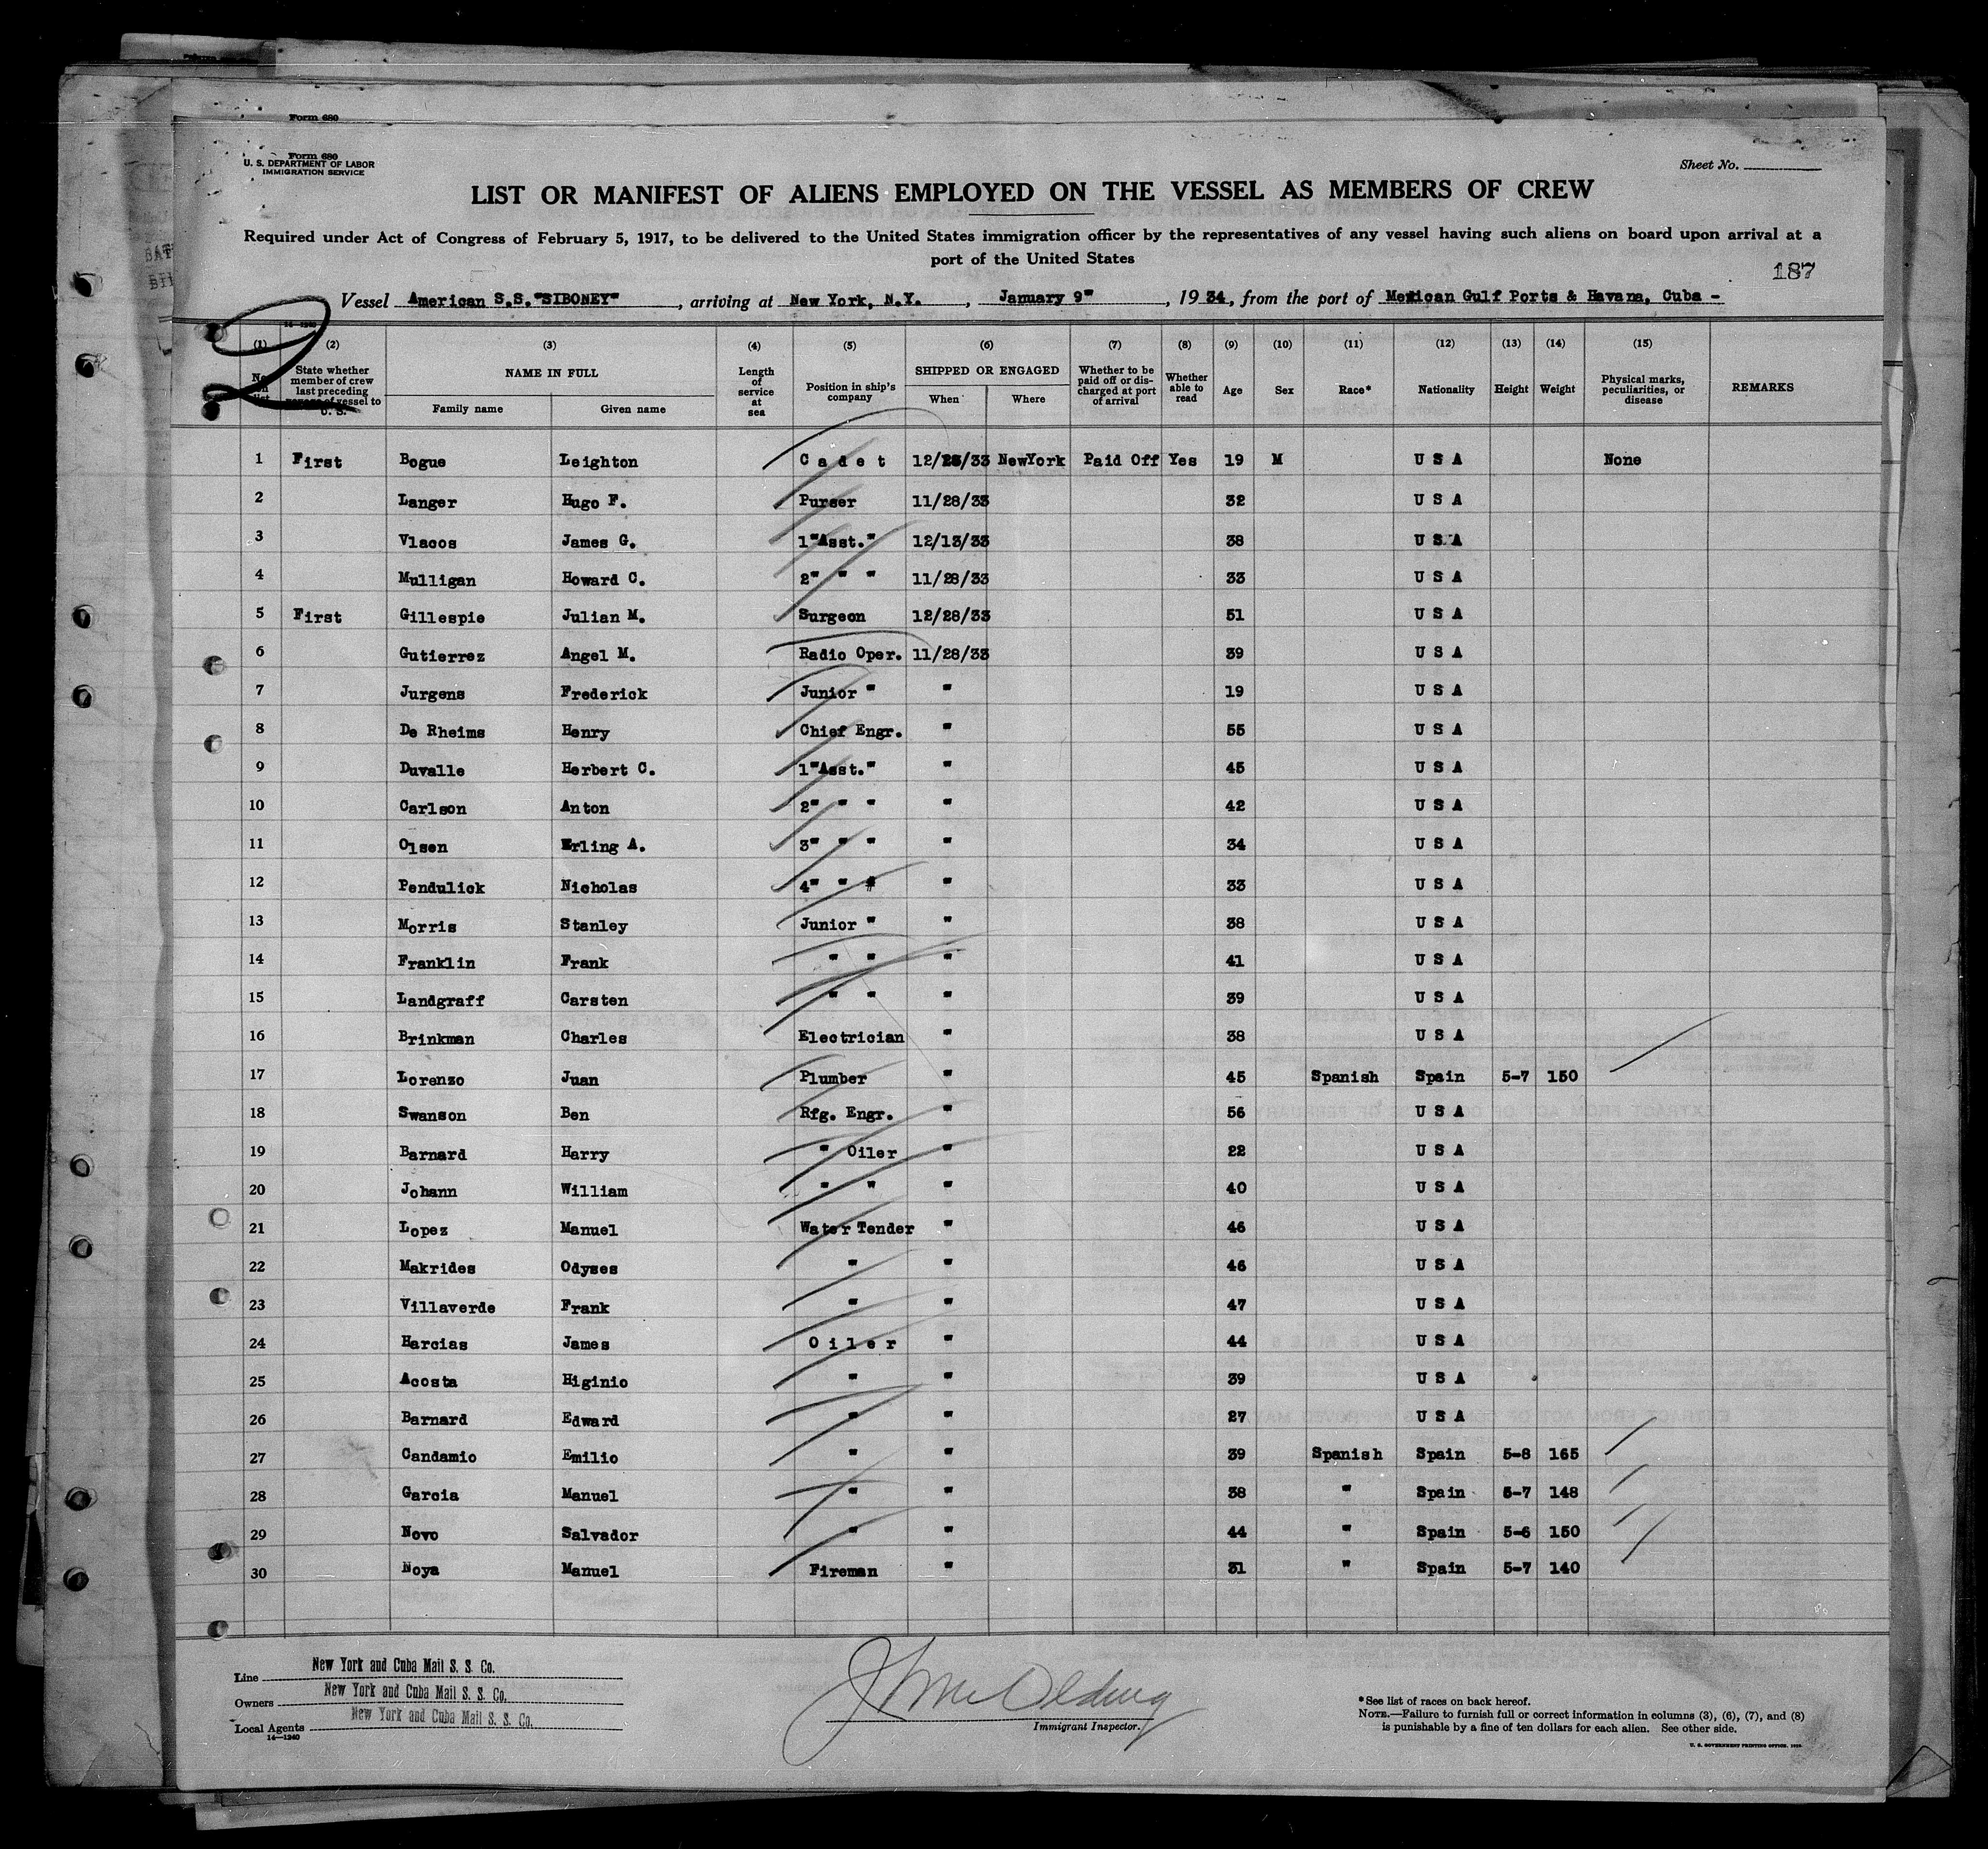 Form 680
Form 680
U. S. DEPARTMENT OF LABOR
IMMIGRATION SERVICE
Sheet No.
LIST OR MANIFEST OF ALIENS EMPLOYED ON THE VESSEL AS MEMBERS OF CREW
Required under Act of Congress of February 5, 1917, to be delivered to the United States immigration officer by the representatives of any vessel having such aliens on board upon arrival at a
port of the United States
187
Vessel American S.S."SIBONEY", arriving at New York, N.Y., January 9", 1934, from the port of Mexican Gulf Ports & Havana, Cuba -
2
14—1240
(1) (2) (3) (4) (5) (6) (7) (8) (9) (10) (11) (12) (13) (14) (15)
No. on list
State whether member of crew last preceding voyage of vessel to U. S.
NAME IN FULL
Family name Given name
Length of service at sea
Position in ship's company
SHIPPED OR ENGAGED
When Where
Whether to be paid off or discharged at port of arrival
Whether able to read
Age Sex Race* Nationality Height Weight
Physical marks, peculiarities, or disease
REMARKS
1 First Bogue Leighton Cadet 12/28/33 NewYork Paid Off Yes 19 M U S A None
2 Langer Hugo F. Purser 11/28/33 32 U S A
3 Vlacos James G. 1"Asst." 12/13/33 38 U S A
4 Mulligan Howard C. 2" " " 11/28/33 33 U S A
5 First Gillespie Julian M. Surgeon 12/28/33 51 U S A
6 Gutierrez Angel M. Radio Oper. 11/28/33 39 U S A
7 Jurgens Frederick Junior " " 19 U S A
8 De Rheims Henry Chief Engr. " 55 U S A
9 Duvalle Herbert C. 1"Asst." " 45 U S A
10 Carlson Anton 2" " " " 42 U S A
11 Olsen Erling A. 3" " " " 34 U S A
12 Pendulick Nicholas 4" " " " 33 U S A
13 Morris Stanley Junior " " 38 U S A
14 Franklin Frank " " " 41 U S A
15 Landgraff Carsten " " " 39 U S A
16 Brinkman Charles Electrician " 38 U S A
17 Lorenzo Juan Plumber " 45 Spanish Spain 5-7 150
18 Swanson Ben Rfg. Engr. " 56 U S A
19 Barnard Harry " Oiler " 22 U S A
20 Johann William " " " 40 U S A
21 Lopez Manuel Water Tender " 46 U S A
22 Makrides Odyses " " 46 U S A
23 Villaverde Frank " " 47 U S A
24 Harcias James Oiler " 44 U S A
25 Acosta Higinio " " 39 U S A
26 Barnard Edward " " 27 U S A
27 Candamio Emilio " " 39 Spanish Spain 5-8 165
28 Garcia Manuel " " 38 " Spain 5-7 148
29 Novo Salvador " " 44 " Spain 5-6 150
30 Noya Manuel Fireman " 31 " Spain 5-7 140
Line New York and Cuba Mail S. S. Co.
Owners New York and Cuba Mail S. S. Co.
Local Agents New York and Cuba Mail S. S. Co.
14—1240
Immigrant Inspector.
*See list of races on back hereof.
NOTE.—Failure to furnish full or correct information in columns (3), (6), (7), and (8)
is punishable by a fine of ten dollars for each alien. See other side.